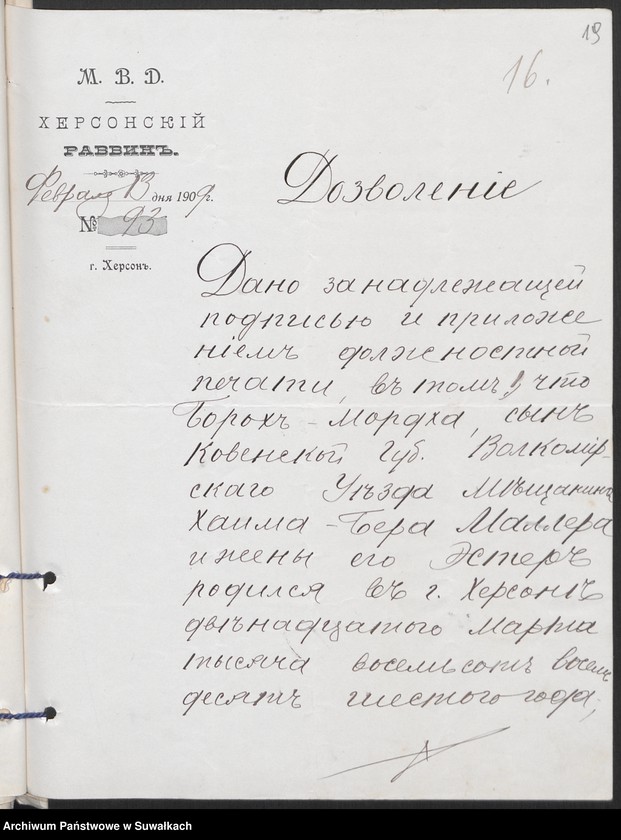 19
16.
М. В. D.
ХЕРСОНСКІЙ
РАВВИНЪ.
Февраля 13 дня 1909 г.
№ 93
г. Херсонъ.
Дозволеніе
Дано за надлежащей
подписью и приложе
ніемъ должностной
печати, въ томъ, что
Борохъ - Мордха, сынъ
Ковенской Губ. Волкомір-
скаго Уѣзда Мѣщанина
Хаима - Бера Маллера
и жены его Эстеръ
родился въ г. Херсонѣ
двѣнадцатого Марта
тысяча восемьсотъ восемь
десятъ шестого года,
Archiwum Państwowe w Suwałkach